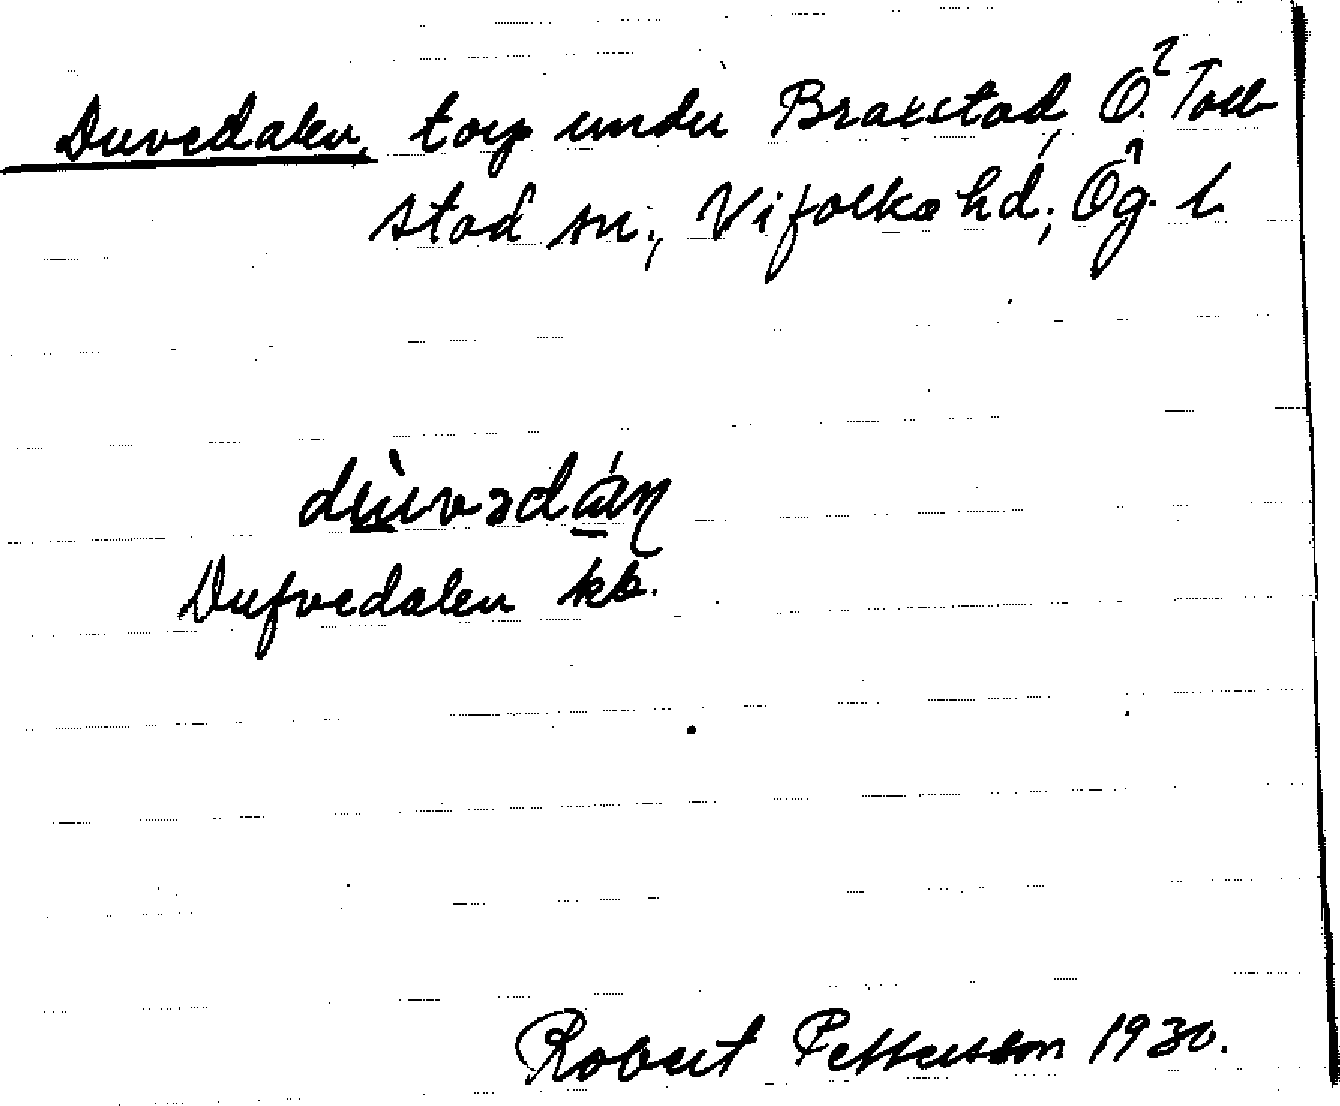 Duvedalen, torp under Braestad, Ö. Tol-
stad sn., Vifolka hd., Ög. l.
dùvədáṇ
Dufvedalen kb.
Robert Pettersson 1930.